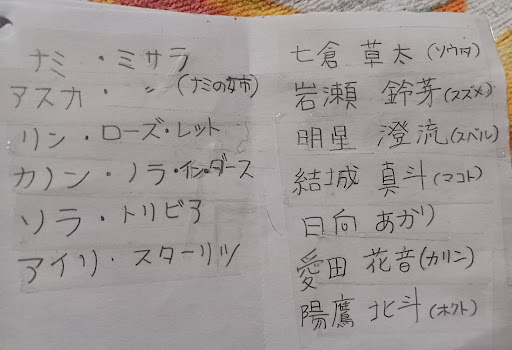 ナミ・ミサラ
アスカ・〃(ナミの女市)
リン・ローズ・レット
カノン・ノラ・イン・ダース
ソラ・トリビア
アイリ・スターリツ
七倉 草太(ソウタ)
岩瀬 鈴芽(スズメ)
明星 澄流(スバル)
結城 真斗(マコト)
日向 あかり
愛田 花音(カリン)
陽鷹 北斗(ホクト)